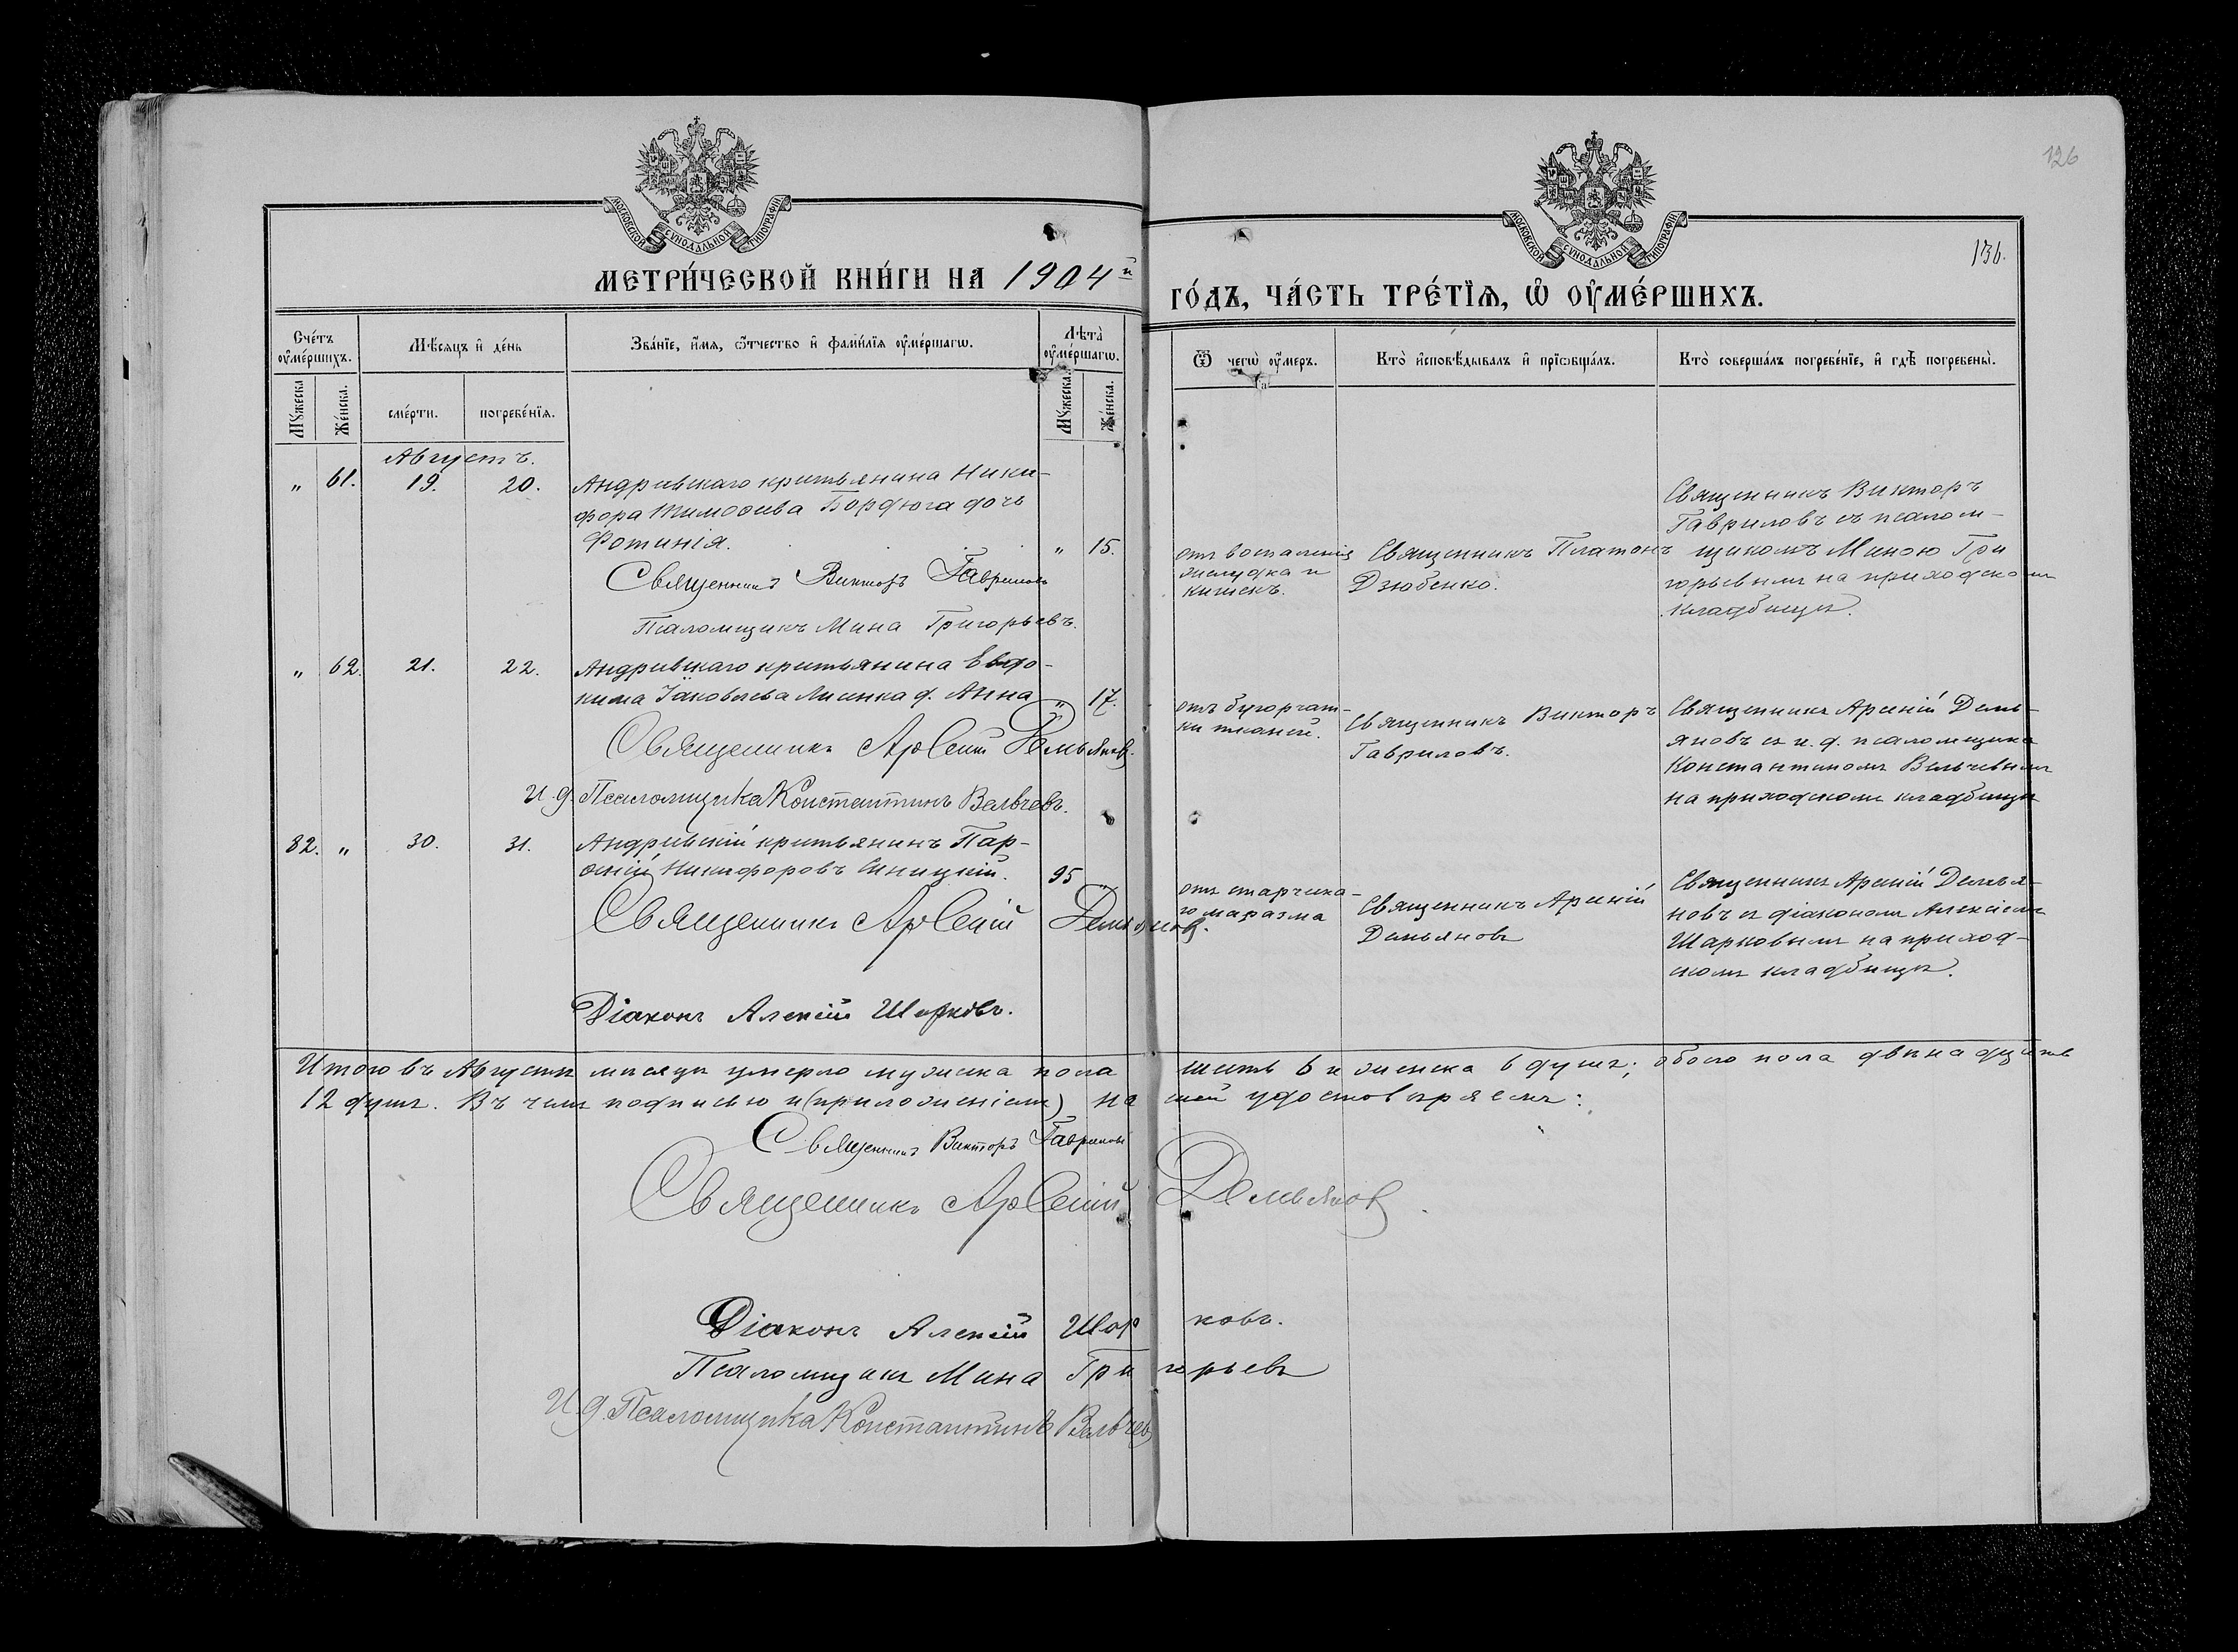 126
МОСКОВСКОЙ СѴНОДАЛЬНОЙ ТИПОГРАФІИ
МОСКОВСКОЙ СѴНОДАЛЬНОЙ ТИПОГРАФІИ
136.
МЕТРИ́ЧЕСКОЙ КНИ́ГИ НА 1904й
ГО́ДЪ, ЧА́СТЬ ТРЕ́ТІѦ, Ѡ҆ ОУ҆МЕ́РШИХЪ.
Сче́тъ оу҆ме́ршихъ.
Мѣ́сяцъ и҆ де́нь
Зва́нїе, и҆́мя, ѻ҆́тчество и҆ фами́лїя оу҆ме́ршагѡ.
Лѣта̀ оу҆ме́ршагѡ.
Ѿ чегѡ̀ оу҆́меръ.
Кто̀ и҆сповѣ́дывалъ и҆ прїѡбща́лъ.
Кто̀ соверша́лъ погребе́нїе, и҆ гдѣ̀ погребены̀.
Мꙋ́жеска
Же́нска.
сме́рти.
погребе́нїя.
Мꙋ́жеска.
Же́нска.
Августъ.
„ 61. 19. 20.
Андреевскаго крестьянина Ники-
фора Тимофеева Бордюга дочь
Фотинія. „ 15.
Священникъ Викторъ Гавриловъ
Псаломщикъ Мина Григорьевъ.
отъ воспаленія
желудка и
кишекъ.
Священникъ Платонъ
Дзюбенко.
Священникъ Викторъ
Гавриловъ съ псалом-
щикомъ Миною Гри
горьевымъ на приходскомъ
кладбищѣ.
„ 62. 21. 22.
Андреевскаго крестьянина Евдо-
кима Іаковлева Лисенка д. Анна „ 17.
Священникъ Арсеній Демьянов.
И. д. Псаломщика Константинъ Вельчевъ.
отъ бугорчат-
ки тканей.
Священникъ Викторъ
Гавриловъ.
Священникъ Арсеній Демь-
яновъ съ и. д. псаломщика
Константиномъ Вельчевымъ
на приходскомъ кладбищѣ
82. „ 30. 31.
Андреевскій крестьянинъ Пар-
феній Никифоровъ Синицкій. 95 „
Священникъ Арсеній Демьянов.
Діаконъ Алексій Шарковъ.
отъ старческа-
го маразма
Священникъ Арсеній
Демьяновъ
Священникъ Арсеній Демья-
новъ съ діакономъ Алексіемъ
Шарковымъ на приход-
скомъ кладбищѣ.
Итого въ Августѣ мѣсяцѣ умерло мужеска пола шесть 6 и женска 6 душъ; обоего пола двѣнадцать
12 душъ. Въ чемъ подписью и (приложеніемъ) на сей удостовѣряемъ:
Священникъ Викторъ Гавриловъ
Священникъ Арсеній Демьянов.
Діаконъ Алексій Шарковъ.
Псаломщикъ Мина Григорьевъ
И. д. Псаломщика Константинъ Вельчев